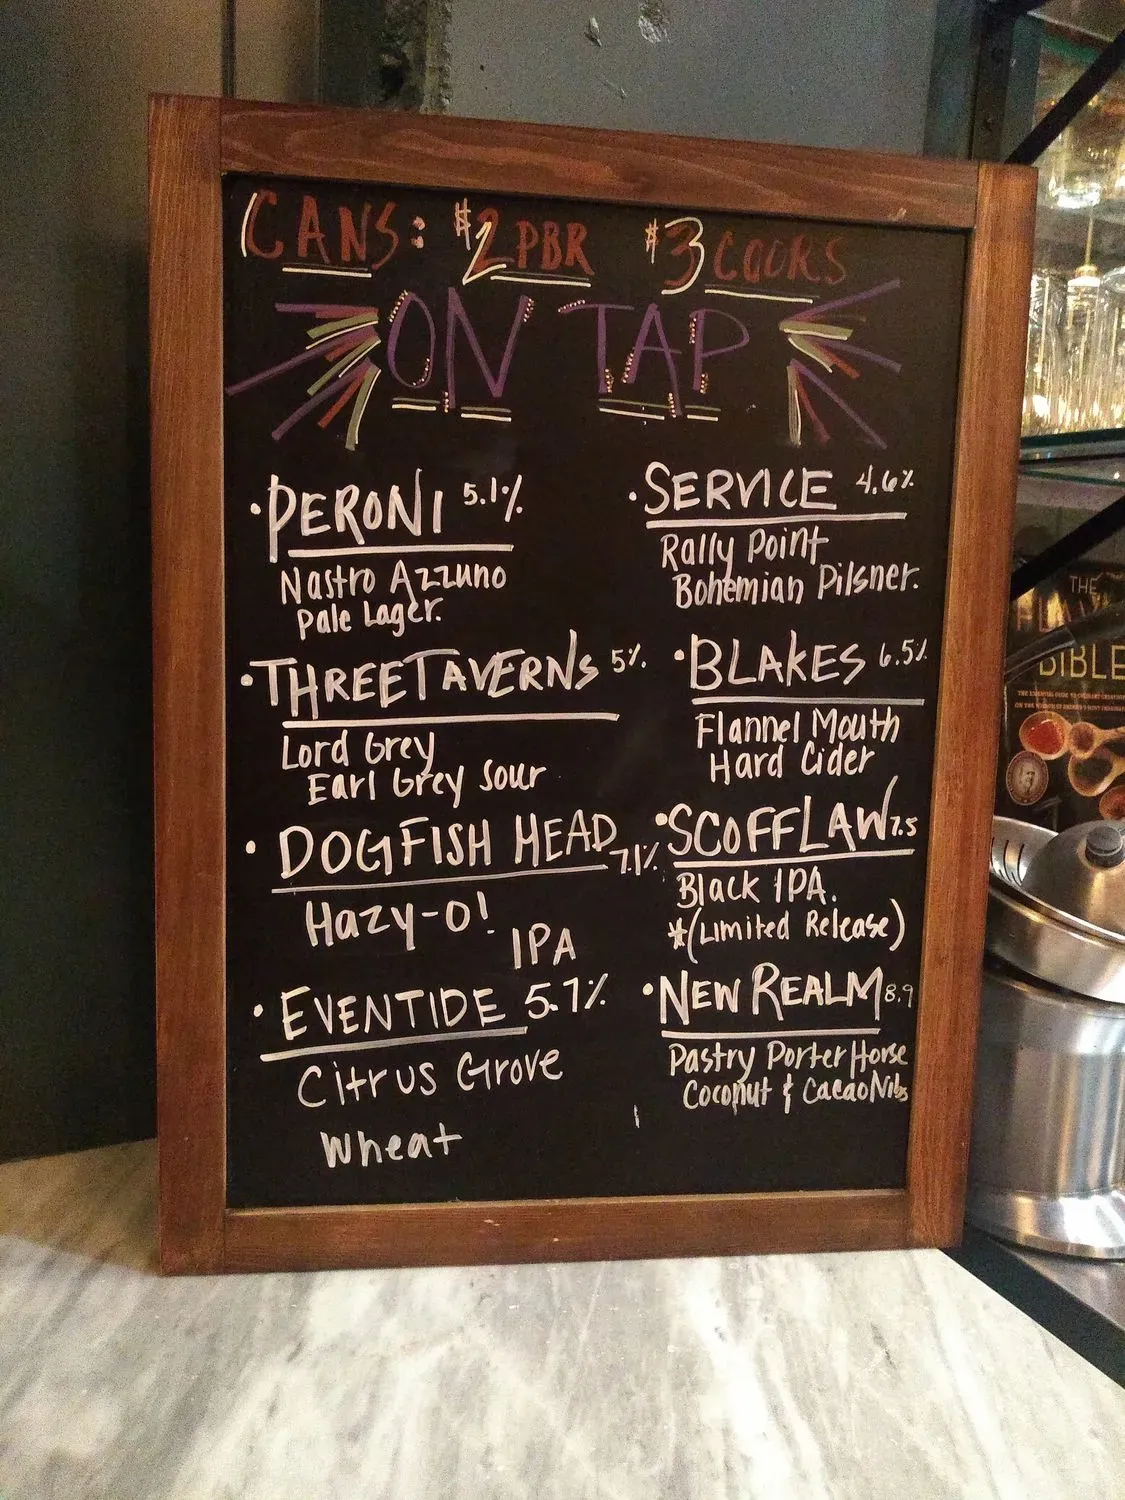 CANS: $2 PBR $3 COORS
ON TAP
• PERONI 5.1%
Nastro Azzuno
Pale Lager.
• THREE TAVERNS 5%
Lord Grey
Earl Grey Sour
• DOGFISH HEAD 7.1%
Hazy-O!
IPA
• EVENTIDE 5.7%
Citrus Grove
Wheat
• SERVICE 4.6%
Rally Point
Bohemian Pilsner.
• BLAKES 6.5%
Flannel Mouth
Hard Cider
• SCOFFLAW 7.5
Black IPA.
*(Limited Release)
• NEW REALM 8.9
Pastry Porter Horse
Coconut & Cacao Nibs
THE
BIBLE